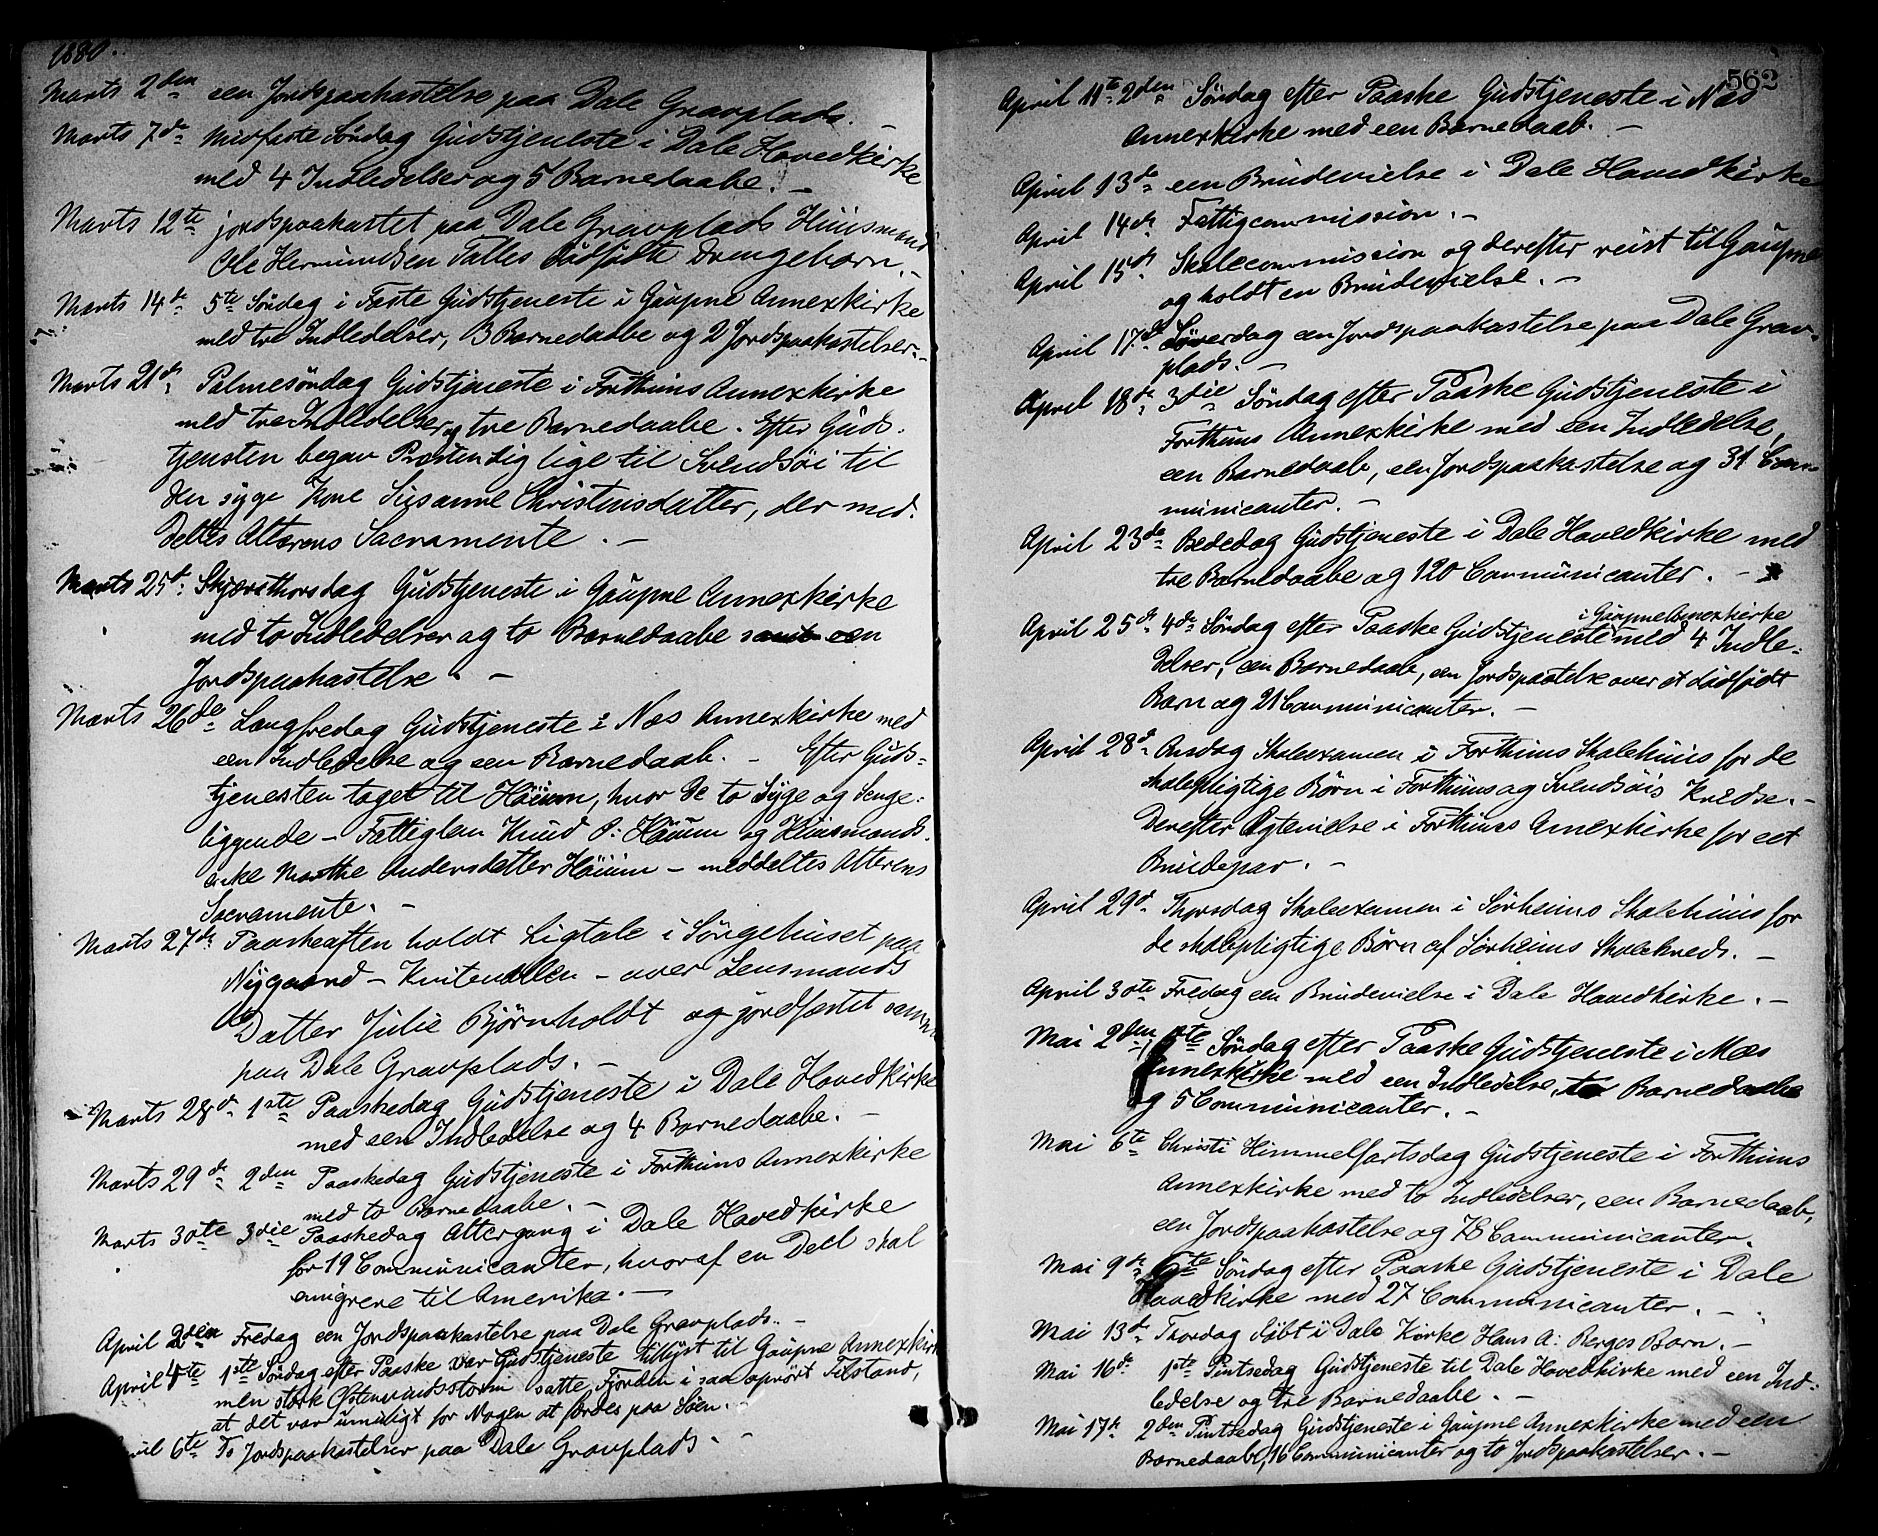 1880.
Marts 2den een Jordspaakastelse paa Dale Gravplads. –
Marts 7de Midfaste Søndag Gudstjeneste i Dale Hovedkirke
med 4 Indledelser og 5 Barnedaabe. –
Marts 12te jordspaakastet paa Dale Gravplads Huusmand
Ole Hermundsen Talles dødfødte Drengebarn. –
Marts 14de 5te Søndag i Faste Gudstjeneste i Gaupne Annexkirke
med tre Indledelser, 3 Barnedaabe og 2 Jordspaakastelser. –
Marts 21de Palmesøndag Gudstjeneste i Forthuns Annexkirke
med tre Indledelser og tre Barnedaabe. Efter Guds-
tjensten begav Præsten sig lige til Svendsøi til
den syge Kone Susanne Christensdatter, der med-
deltes Alterens Sacramente. –
Marts 25d. Skjærsthorsdag Gudstjeneste i Gaupne Annexkirke
med to Indledelser og to Barnedaabe samt een
Jordspaakastelse. –
Marts 26de Langfredag Gudstjeneste i Næs Annexkirke med
een Indledelse og een Barnedaab. – Efter Guds-
tjenesten taget til Høium, hvor de to Syge og Senge-
liggende – Fattiglem Knud O: Høium og Huusmands-
enke Marthe Andersdatter Høium – meddeltes Alterens
Sacramente. –
Marts 27de Paaskeaften holdt Ligtale i Sørgehuset paa
Nygaard – Kvitevolden – over Lensmands
Datter Julie Bjørnholdt og jordfæstet samme
paa Dale Gravplads. –
Marts 28d. 1ste Paaskedag Gudstjeneste i Dale Hovedkirke
med een Indledelse og 4 Barnedaabe. –
Marts 29de 2den Paaskedag Gudstjeneste i Forthuns Annexkirke
med to Barnedaabe. –
Marts 30te 3die Paaskedag Altergang i Dale Hovedkirke
for 19 Communicanter, hvoraf en Deel skal
emigrere til Amerika. –
April 2den Fredag een Jordspaakastelse paa Dale Gravplads. –
April 4te 1ste Søndag efter Paaske var Gudstjeneste tillyst til Gaupne Annexkirke
men stærk Østenvindsstorm satte Fjorden i saa oprørt Tilstand,
at det var umuligt for Nogen at færdes paa Søen.
April 6te To Jordspaakastelser paa Dale Gravplads. –
562
April 11te 2den Søndag efter Paaske Gudstjeneste i Næs
Annexkirke med een Barnedaab. –
April 13de een Brudevielse i Dale Hovedkirke
April 14de Fattigcommission. –
April 15de Skolecommission og derefter reist til Gaupne
og holdt en Brudevielse. –
April 17de Løverdag een Jordspaakastelse paa Dale Grav-
plads. –
April 18de 3die Søndag efter Paaske Gudstjeneste i
Forthuns Annexkirke med een Indledelse,
een Barnedaab, een Jordspaakastelse og 31 Com-
municanter. –
April 23de Bededag Gudstjeneste i Dale Hovedkirke med
tre Barnedaabe og 120 Communicanter. –
i Gaupne Annexkirke
April 25de 4de Søndag efter Paaske Gudstjeneste med 4 Indle-
delser, een Barnedaab, een Jordspaatelse over et dødfødt
Barn og 21 Communicanter. –
April 28d. Onsdag Skoleexamen i Forthuns Skolehuus for de
skolepligtige Børn i Forthuns og Svendsøis Kredse. –
Derefter Egtevielse i Forthuns Annexkirke for eet
Brudepar. –
April 29d. Thorsdag Skoleexamen i Sørheims Skolehuus for
de skolepligtige Børn af Sørheims Skolekreds. –
April 30te Fredag een Brudevielse i Dale Hovedkirke. –
Mai 2den 5te Søndag efter Paaske Gudstjeneste i Næs
Annexkirke med een Indledelse, to Barnedaabe
og 5 Communicanter. –
Mai 6te Christi Himmelfartsdag Gudstjeneste i Forthuns
Annexkirke med to Indledelser, een Barnedaab,
een Jordspaakastelse og 78 Communicanter.
Mai 9de 6te Søndag efter Paaske Gudstjeneste i Dale
Hovedkirke med 27 Communicanter. –
Mai 13de Thordag døbt i Dale Kirke Hans A: Berges Barn. –
Mai 16de 1ste Pintsedag Gudstjeneste til Dale Hovedkirke med een Ind-
ledelse og tre Barnedaabe. –
Mai 17de 2den Pintsedag Gudstjeneste i Gaupne Annexkirke med een
Barnedaab, 16 Communicanter og to Jordspaakastelser. –